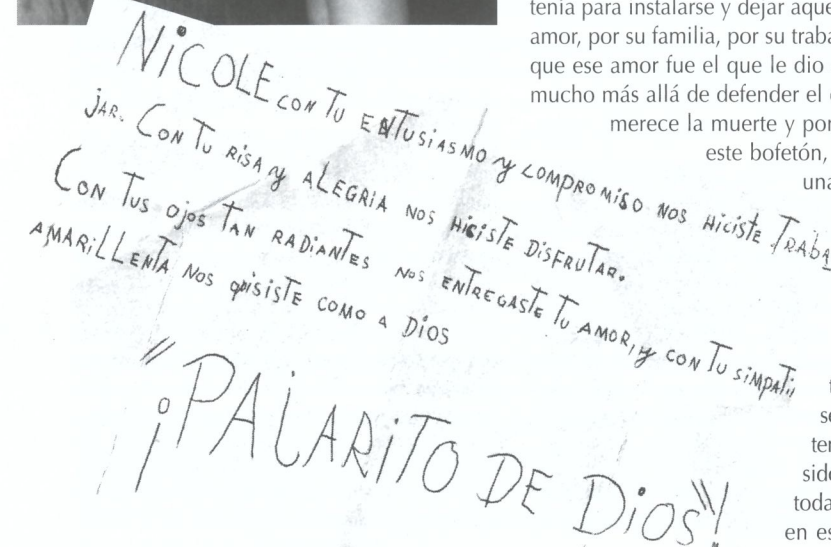 tenía para instalarse y dejar aque
amor, por su familia, por su traba
que ese amor fue el que le dio
mucho más allá de defender el
merece la muerte y por
este bofetón,
una
NiCOLE CON TU ENTUSiASMO y COMPROMiSO NOS HiCiSTE TRABA
JAR. CON TU RiSA y ALEGRiA NOS HiCiSTE DiSFRUTAR.
CON TUS OJOS TAN RADiANTES NOS ENTREGASTE TU AMOR, y CON TU SiMPATi
AMARiLLENTA NOS QUiSiSTE COMO A DiOS
"¡PAJARiTO DE DiOS"!
se
ter
sido
toda
en es